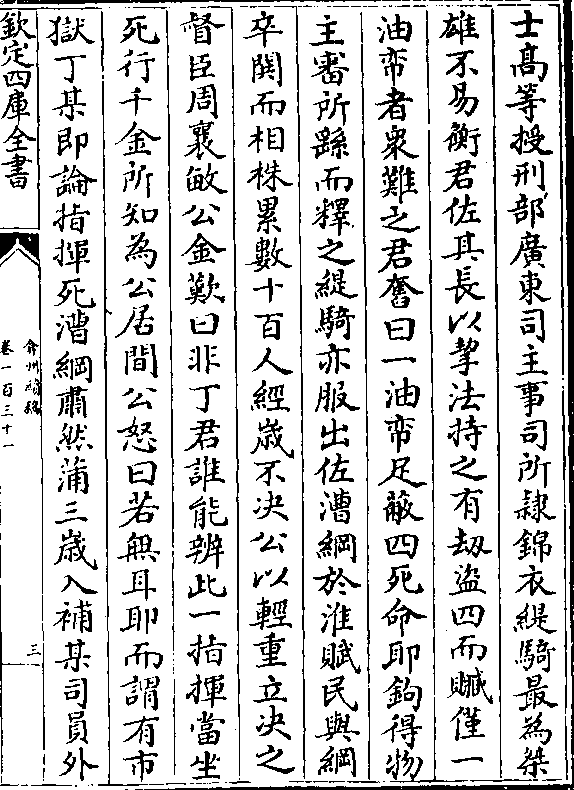 士髙等授刑部廣東司主事司所隷錦衣緹騎最為桀
雄不易衡君佐其長以挈法持之有刼盜四而贓僅一
油帟者衆難之君奮曰一油帟足蔽四死命耶鉤得物
主審所繇而釋之緹騎亦服出佐漕綱於淮賦民與綱
卒閧而相株累數十百人經歳不决公以輕重立决之
督臣周襄敏公金歎曰非丁君誰能辨此一指揮當坐
死行千金所知為公居間公怒曰若無耳耶而謂有市
獄丁某即論指揮死漕綱肅然蒲三歳入補某司員外
欽定四庫全書
弇州續稿
卷一百三十一
三